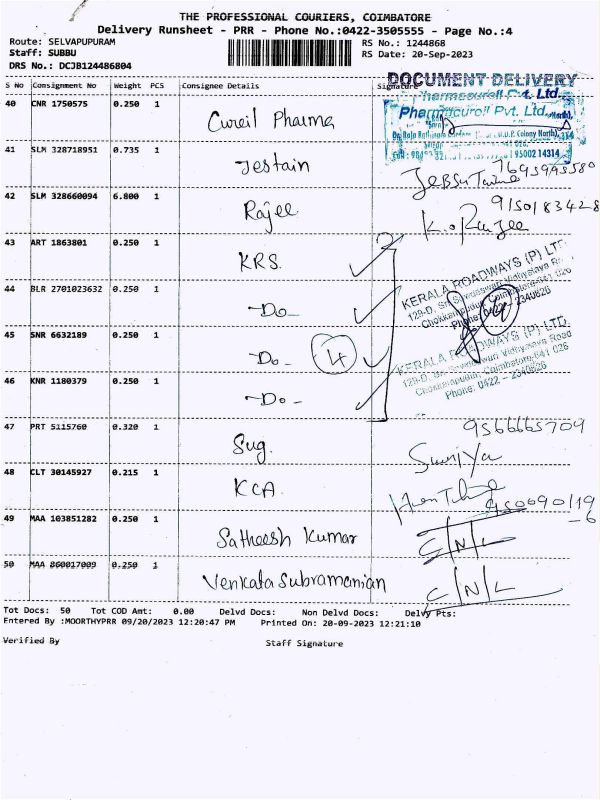 THE PROFESSIONAL COURIERS, COIMBATORE
Delivery Runsheet - PRR - Phone No.:0422-3505555 - Page No.:4
Route: SELVAPUPURAM RS No.: 1244868
Staff: SUBBU RS Date: 20-Sep-2023
DRS No.: DCJB124486804
S No Consignment No Weight PCS Consignee Details Signature
DOCUMENT DELIVERY
40 CNR 1750575 0.250 1 Cureil Pharma
Pharmacureil Pvt. Ltd.
41 SLM 328718951 0.735 1 Jestain 7695995580
42 SLM 328660094 6.800 1 Rajee 9150183428
43 ART 1863801 0.250 1 KRS
44 BLR 2701023632 0.250 1 -Do-
KERALA ROADWAYS (P) LTD.
129-D, Sri Saraswari Vidhyalaya Road
Chokkampudur, Coimbatore-641 026
Phone: 0422 - 2340626
45 SNR 6632189 0.250 1 -Do- 4
KERALA ROADWAYS (P) LTD.
129-D, Sri Saraswari Vidhyalaya Road
Chokkampudur, Coimbatore-641 026
Phone: 0422 - 2340626
46 KNR 1180379 0.250 1 -Do-
47 PRT 5115760 0.320 1 Sug. 9566665709
Suriya
48 CLT 30145927 0.215 1 KCA.
49 MAA 103851282 0.250 1 Satheesh Kumar C/N/L
50 MAA 860017009 0.250 1 Venkata Subramanian C/N/L
Tot Docs: 50 Tot COD Amt: 0.00 Delvd Docs: Non Delvd Docs: Delvy Pts:
Entered By :MOORTHYPRR 09/20/2023 12:20:47 PM Printed On: 20-09-2023 12:21:10
Verified By Staff Signature